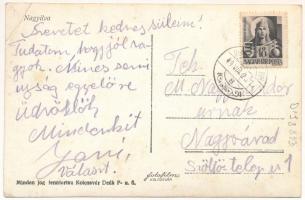 Nagyilva
Szeretet kedves szüleim!
Tudatom, hogy jól va-
gyok. Mincs semi
ujság egyelőre
Üdvözlök
Mindenkit
Jani,
Választ.
MAGYAR POSTA
Tek.
M. Nagy
urnak
Nagyvárad
Szőlős telep u 1
Minden jog fenntartva Kolozsvár Deák F- u. 6.
fotofilm
KOLOZSVÁR